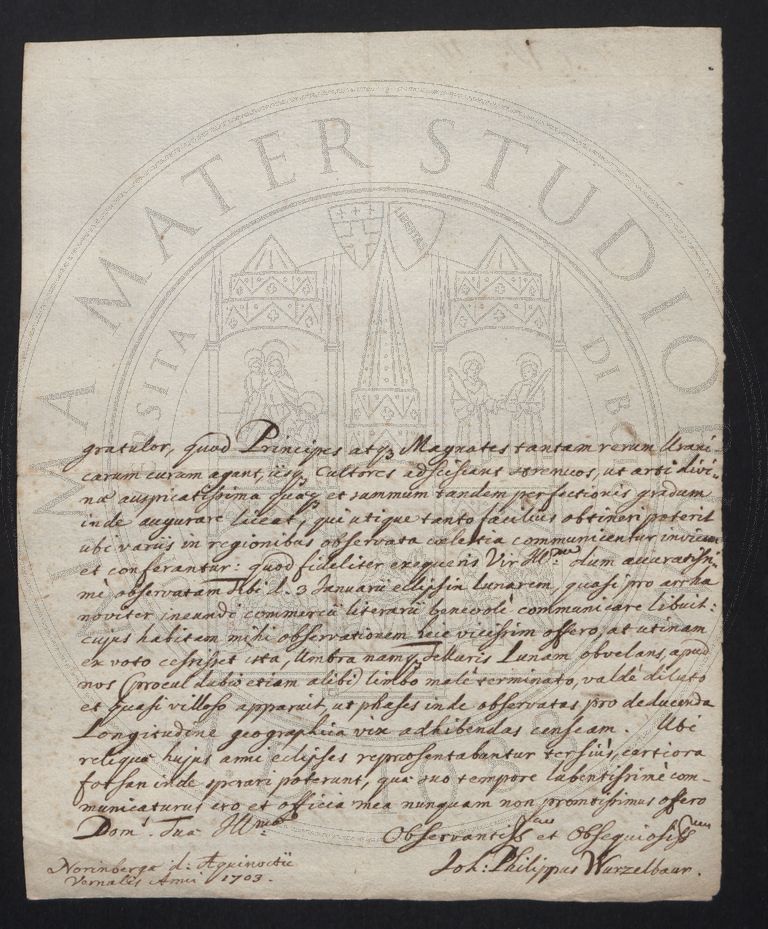 gratulor, quod Principes atq3 Magnates tantam rerum Urani-
carum curam agant, iisq3 cultores adsciscant strenuos, ut arti divi-
næ auspicatissima quæq3 et summum tandem perfectionis gradum
inde augurare liceat, qui utique tanto facilius obtineri poterit
ubi variis in regionibus observata cœlestia communicentur invicem
et conferantur: quod fideliter exequeris Vir Illme dum accuratissi-
mè observatam Tibi d. 3 Januarii ecllipsin Lunarem, quasi pro arrha
noviter ineundi commercii literarii benevolè communicare libuit:
cujus habitam mihi observationem hece vicissim offero; at utinam
ex voto cessisset ista, Umbra namq3 Telluris Lunam obvelans, apud
nos (procul dubio etiam alibi) limbo malè terminato, valdè diluto
et quasi villoso apparuit, ut phases inde observatas pro deducenda
Longitudine geographica vix adhibendas censeam. Ubi
reliquæ hujus anni eclipses repræsentabuntur tersiùs, certiora
forsan inde sperari poterunt, quæ suo tempore lubentissimè com-
municaturus ero et officia mea nunquam non promtissimus offero
Domi. Tuæ Illmæ
Observantiss et Obsequiosiss
Joh: Philippus Wurzelbaur.
Norinbergæ d: Æquinoctii
Vernalis Anni 1703.
ALMA MATER STUDIO
DI BO
LIBERTAS